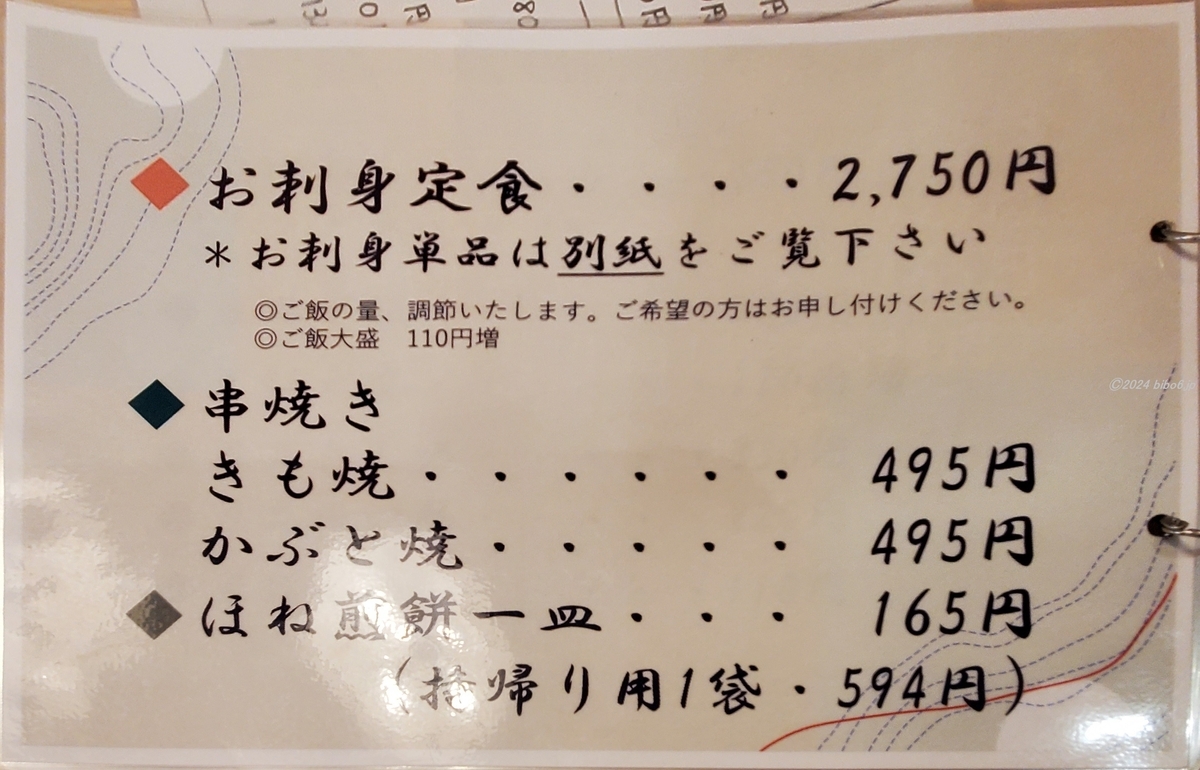 お刺身定食・・・・2,750円
＊お刺身単品は別紙をご覧下さい
◎ご飯の量、調節いたします。ご希望の方はお申し付けください。
◎ご飯大盛　110円増
串焼き
きも焼・・・・・・495円
かぶと焼・・・・・495円
ほね煎餅一皿・・・165円
（持帰り用1袋・594円）